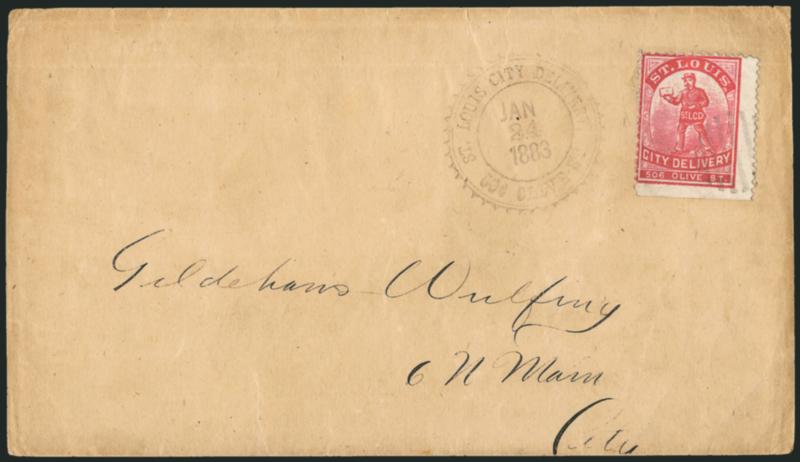 ST. LOUIS CITY DELIVERY
JAN
24
1883
506 OLIVE ST.
ST. LOUIS
STLCD
CITY DELIVERY
506 OLIVE ST.
Gildehaus Wulfing
6 N Main
City